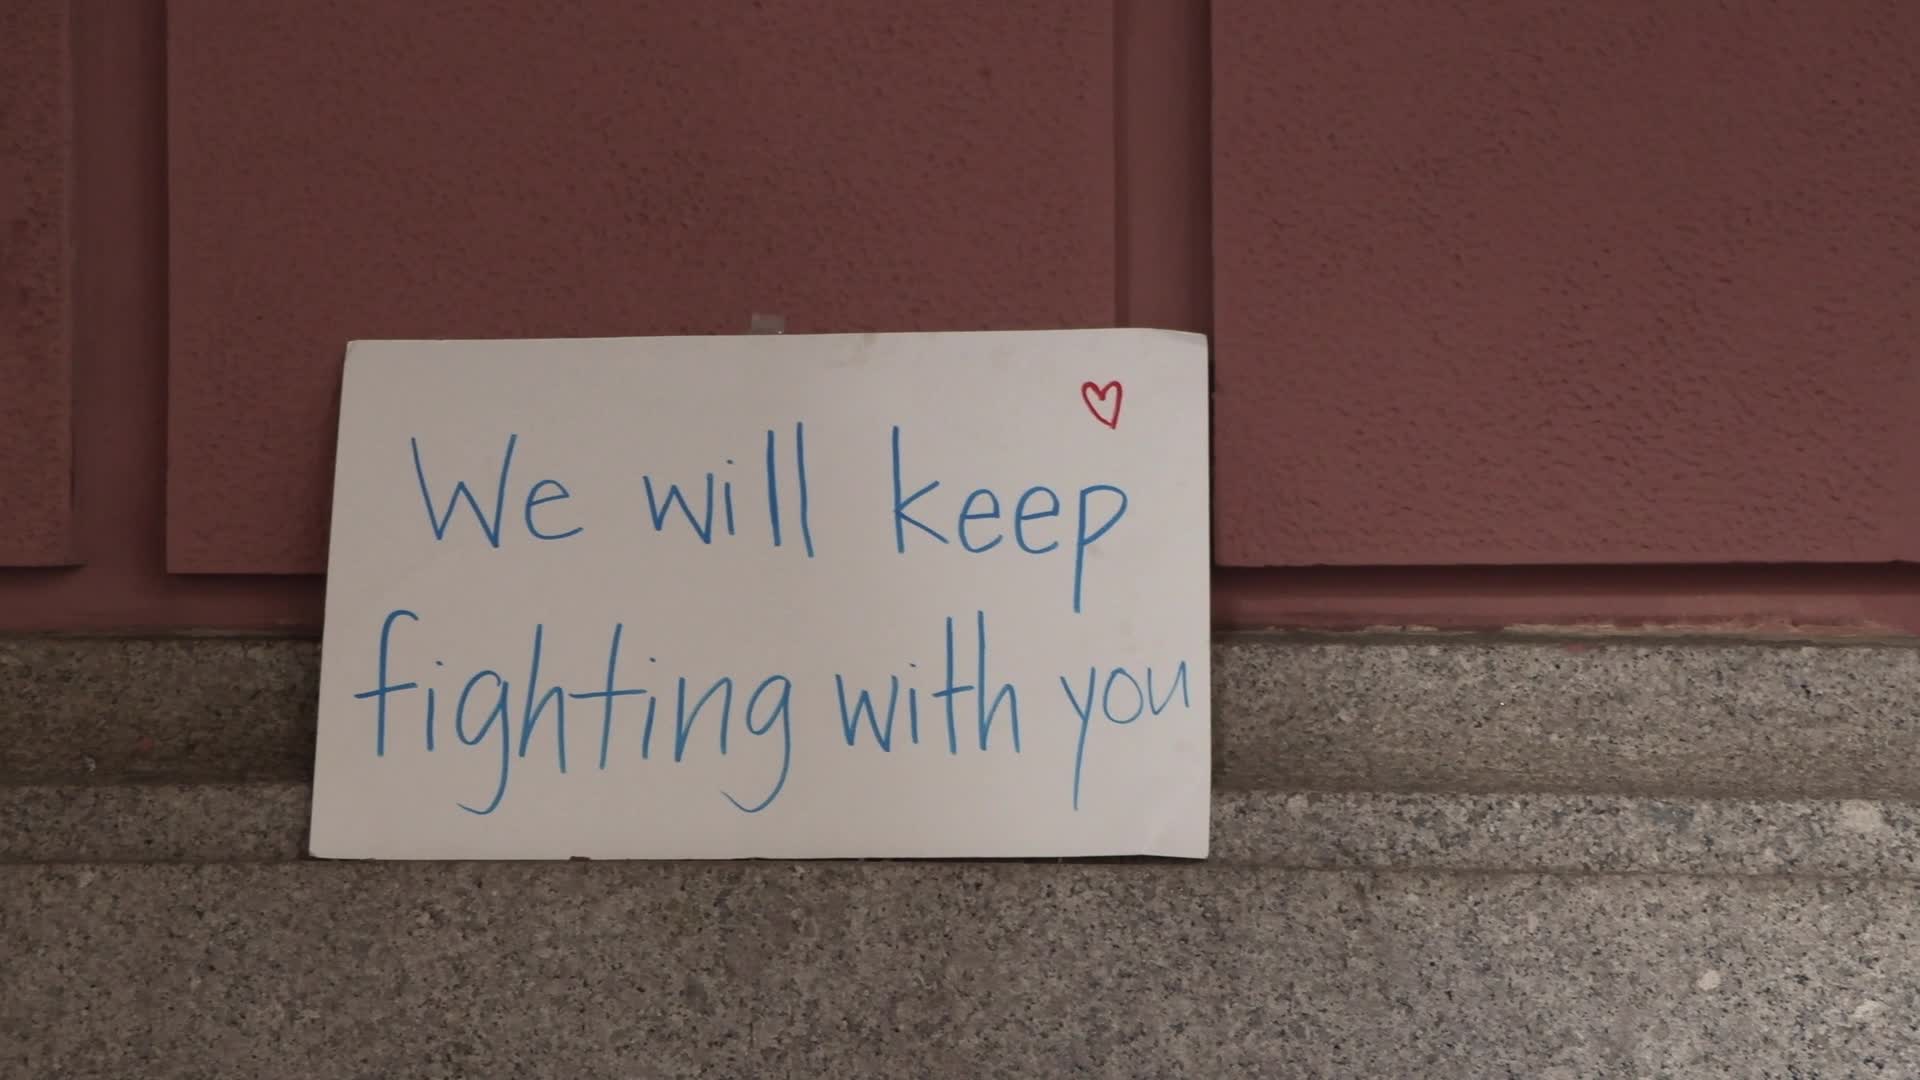 We will keep
fighting with you